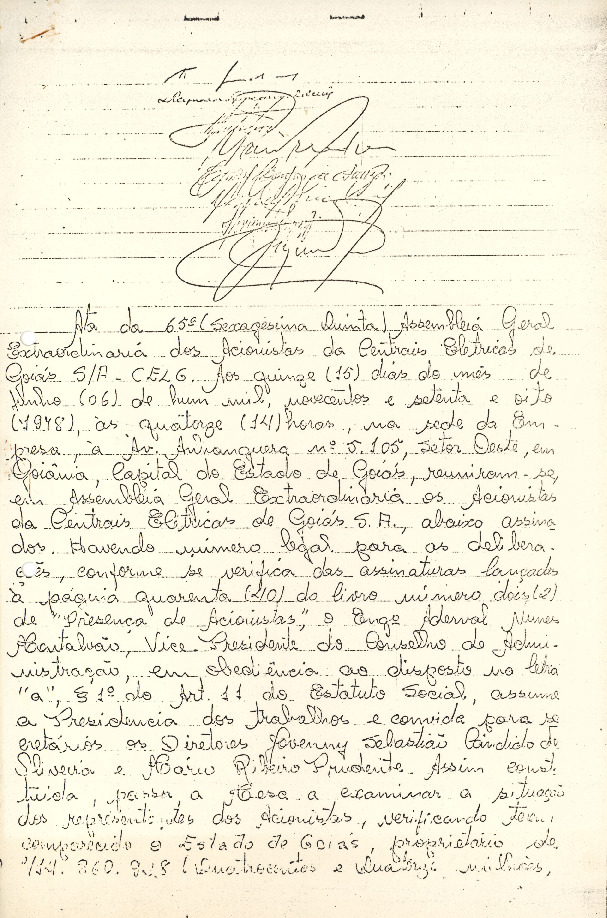 Ata da 65ª (Sexagésima Quinta) Assembleiá Geral
Extraordinariá dos Acionistas da Centrais Eletricas de
Goiás S/A - CELG. Aos quinze (15) dias do mês de
Junho (06) de hum mil, novecentos e setenta e oito
(1978), às quatorze (14) horas, na sede da Em-
presa, à Av. Anhanguera nº 5.105, Setor Oeste, em
Goiânia, Capital do Estado de Goiás, reuniram-se,
em Assembleiá Geral Extraordinariá os Acionistas
da Centrais Elétricas de Goiás S.A., abaixo assina
dos. Havendo número legal para as delibera-
ções, conforme se verifica das assinaturas lançadas
à página quarenta (40) do livro número dois (2)
de "Presença de Acionistas", o Engº Aderval Nunes
Mantalvão, Vice-Presidente do Conselho de Admi-
nistração, em obediência ao disposto na letra
"a", § 1º do Art. 11 do Estatuto Social, assume
a Presidencia dos trabalhos e convida para se
cretários os Diretores Jovenny Sebastião Candido de
Oliveira e Mário Ribeiro Prudente. Assim consti
tuida, passa a Mesa a examinar a situação
dos representantes dos Acionistas, verificando ter
comparecido o Estado de Goiás, proprietário de
414.860.828 (Quatrocentos e quatorze milhões,